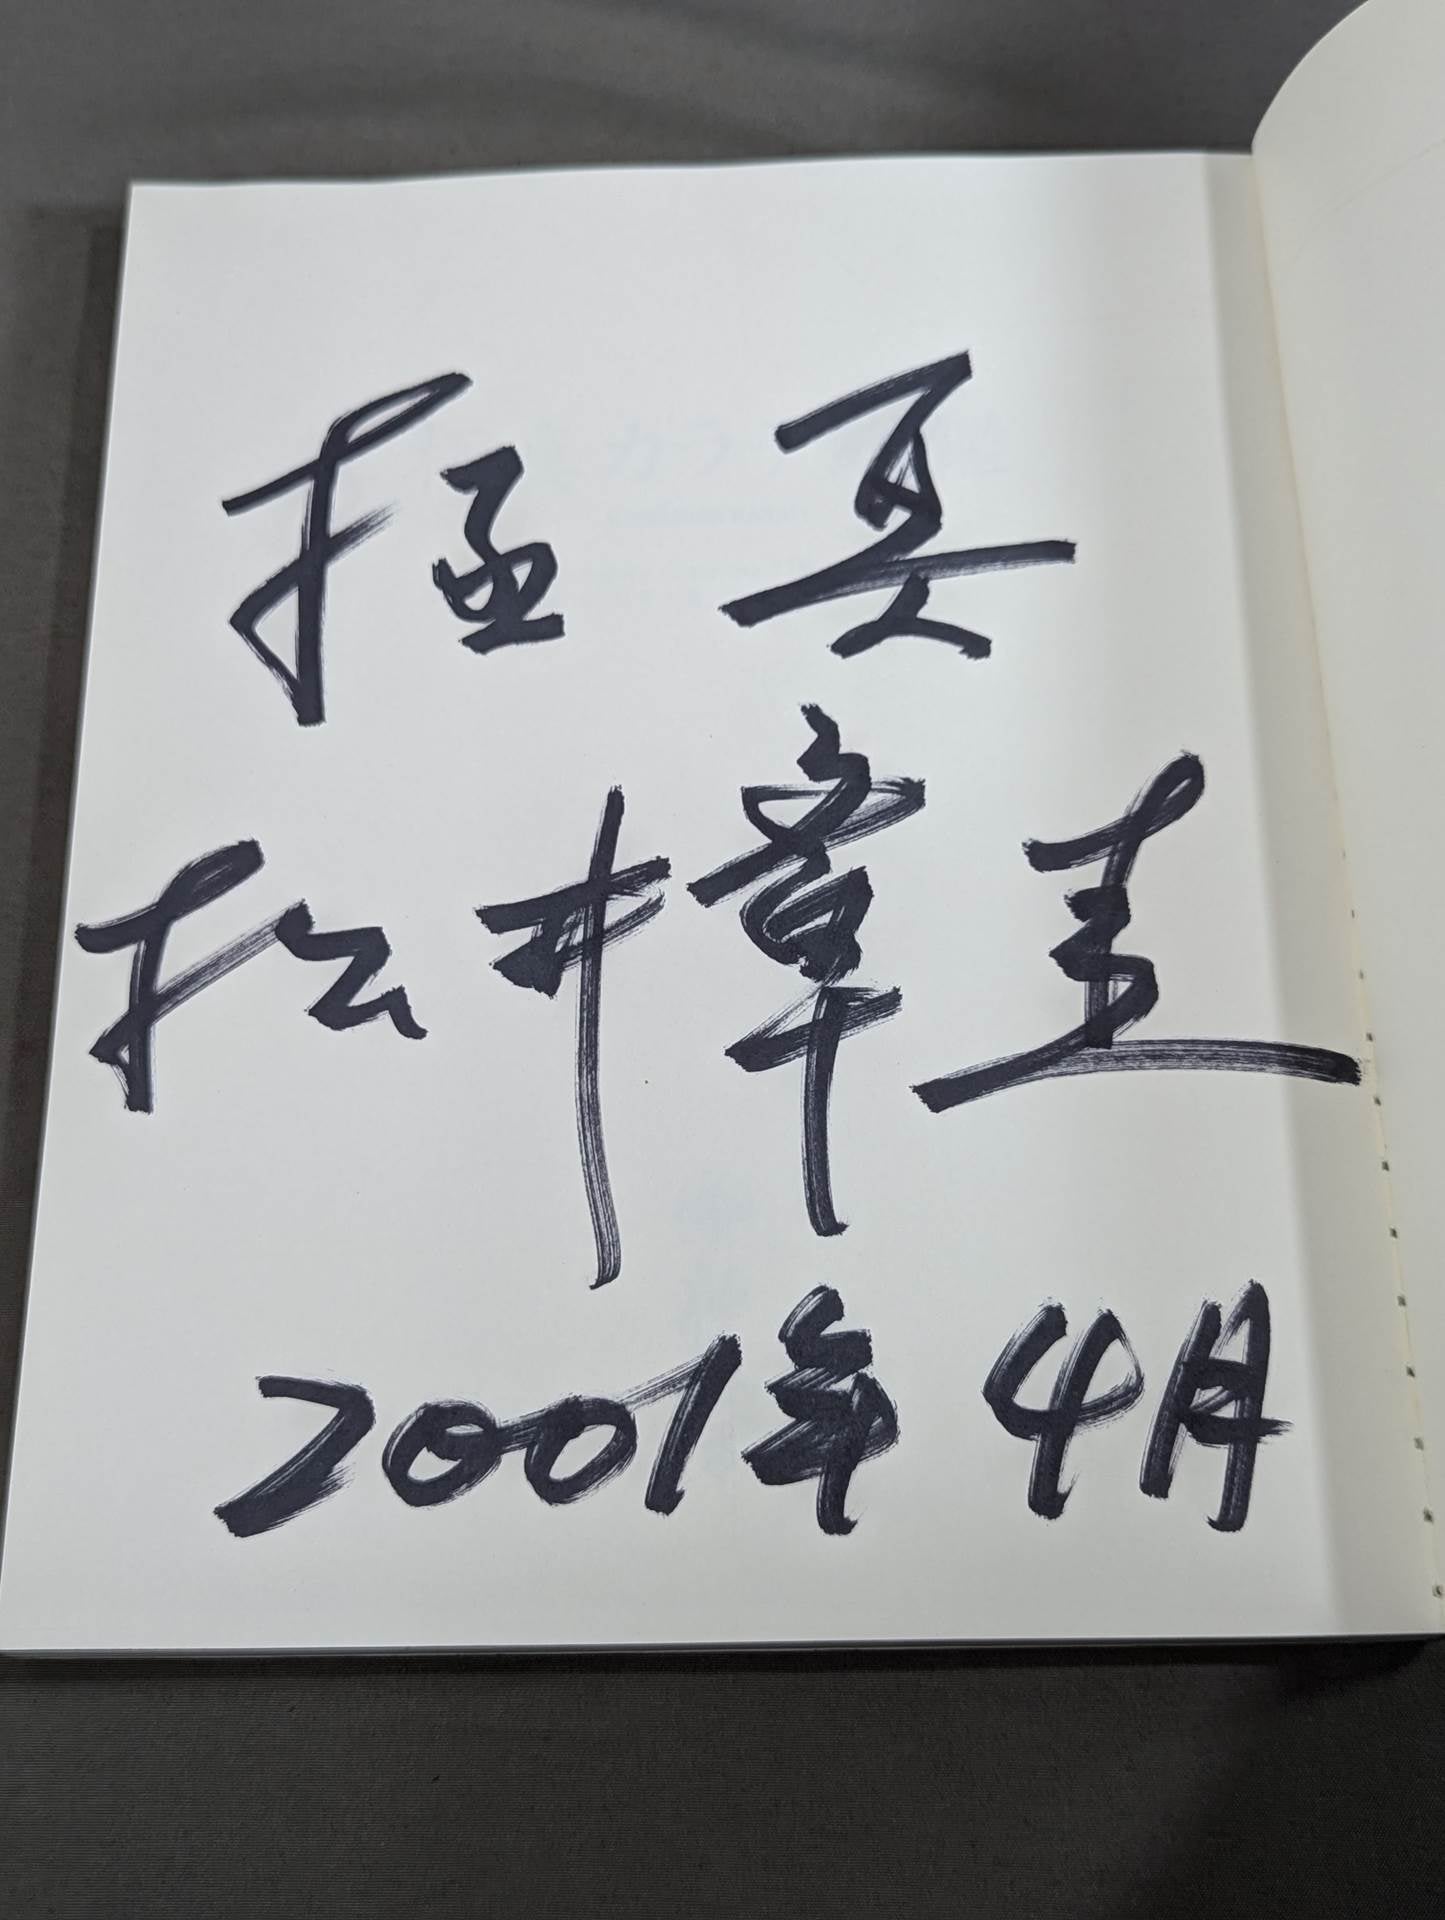 極真
松井章圭
2001年4月